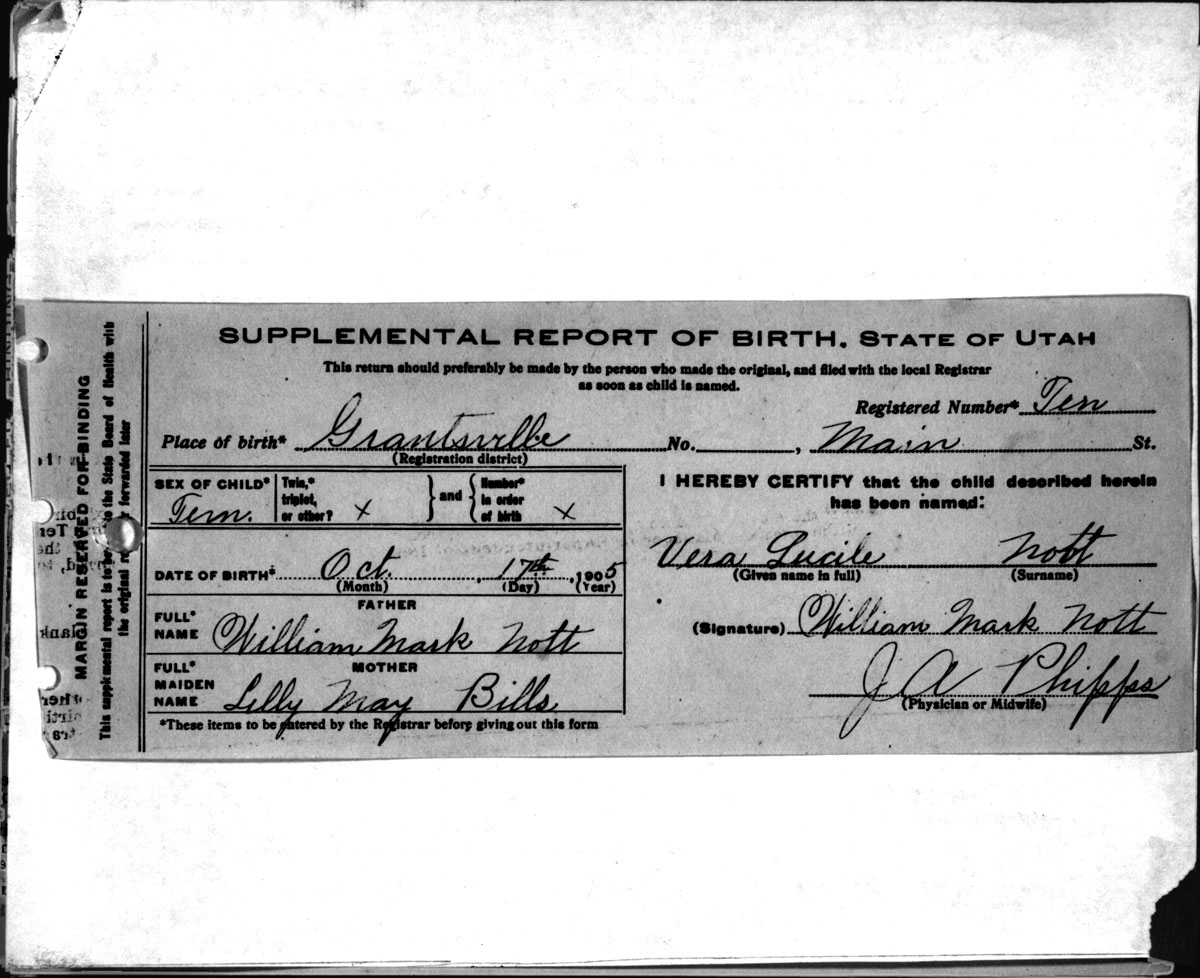 SUPPLEMENTAL REPORT OF BIRTH. STATE OF UTAH
This return should preferably be made by the person who made the original, and filed with the local Registrar
as soon as child is named.
Registered Number* Ten
Place of birth* Grantsville No. , Main St.
(Registration district)
SEX OF CHILD* Fem.
Twin,* triplet, or other? x } and { Number* in order of birth x
DATE OF BIRTH* Oct. , 17th , 1905
(Month) (Day) (Year)
FATHER
FULL* NAME William Mark Nott
MOTHER
FULL* MAIDEN NAME Lilly May Bills
*These items to be entered by the Registrar before giving out this form
I HEREBY CERTIFY that the child described herein
has been named:
Vera Lucile Nott
(Given name in full) (Surname)
(Signature) William Mark Nott
J A Phipps
(Physician or Midwife)
MARGIN RESERVED FOR BINDING
This supplemental report is to the State Board of Health with
the original forwarded later